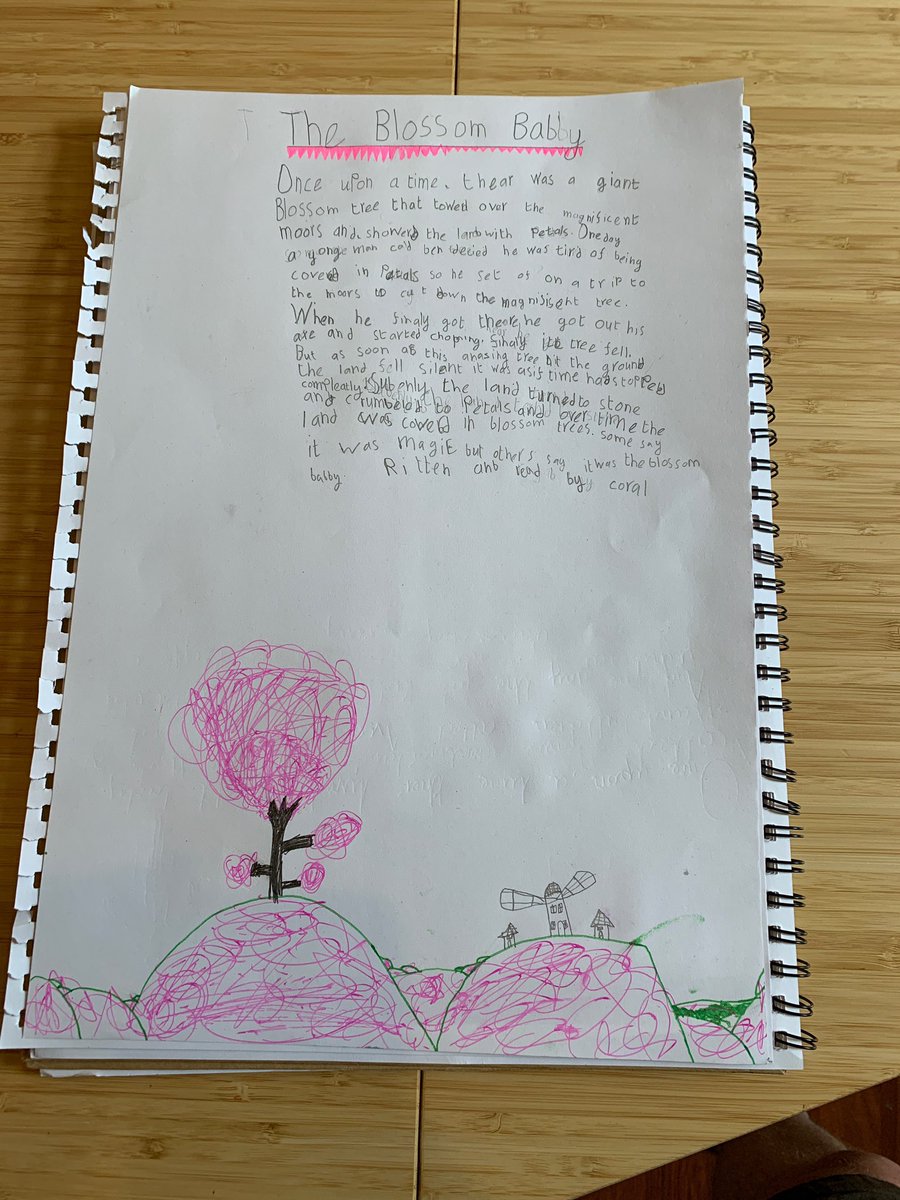 The Blossom Babby
Once upon a time. thear was a giant
Blossom tree that towerd over the magnificent
moors and showerd the land with Petals. One day
a yonge man cald ben decied he was tird of being
coverd in Petals so he set of on a trip to
the moors to cut down the magnisisent tree.
When he finaly got there he got out his
axe and started chopping. finaly the tree fell.
But as soon as this amasing tree hit the ground
the land fell silent it was as if time had stopped
compleatly. Subenly the land turned to stone
and crumbeled to Petals and over time the
land was coverd in blossom trees. some say
it was magic but others say it was the blossom
babby. Ritten and read by coral